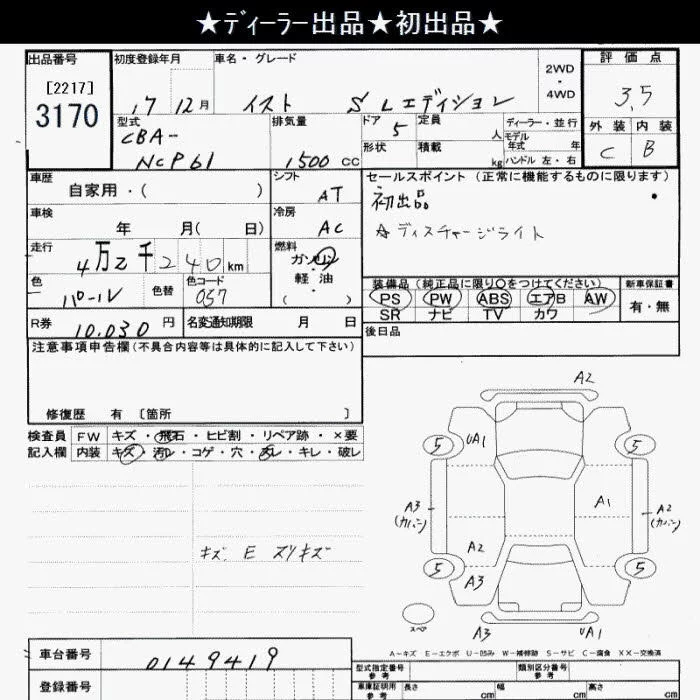 ★ディーラー出品★初出品★
出品番号 初度登録年月 車名・グレード 2WD・4WD 評価点
[2217]
3170
17 12月 イスト SLエディション 3.5
型式 排気量 ドア 定員 人 ディーラー・並行 外装 内装
CBA-
NCP61 1500cc 5 形状 積載 kg モデル年式 年 ハンドル 左・右 C B
車歴 シフト セールスポイント (正常に機能するものに限ります)
自家用・( ) AT 初出品
車検 冷房
年 月( 日) AC ☆ディスチャージライト
走行 燃料
4万2千240km ガソリン・軽油
色 色替 色コード ( )
パール 057
装備品(純正品に限り〇をつけてください) 新車保証書
PS PW ABS エアB AW 有・無
SR ナビ TV カワ
R券 10,030円 名変通知期限 月 日 後日品
注意事項申告欄(不具合内容等は具体的に記入して下さい)
修復歴 有 [箇所 ]
検査員 FW キズ・飛石・ヒビ割・リペア跡・×要
記入欄 内装 キズ・汚レ・コゲ・穴・スレ・キレ・破レ
キズ、E スリキズ
A2
5 UA1 5
A3 (カバン) A1 A2 (カバン)
A2
5 A3 5
スペア A3 UA1
A-キズ E-エクボ U-凹み W-補修跡 S-サビ C-腐食 XX-交換済
車台番号 0149419
型式指定番号 参考 類別区分番号 参考
登録番号 車庫証明用 参考 長さ cm 幅 cm 高さ cm